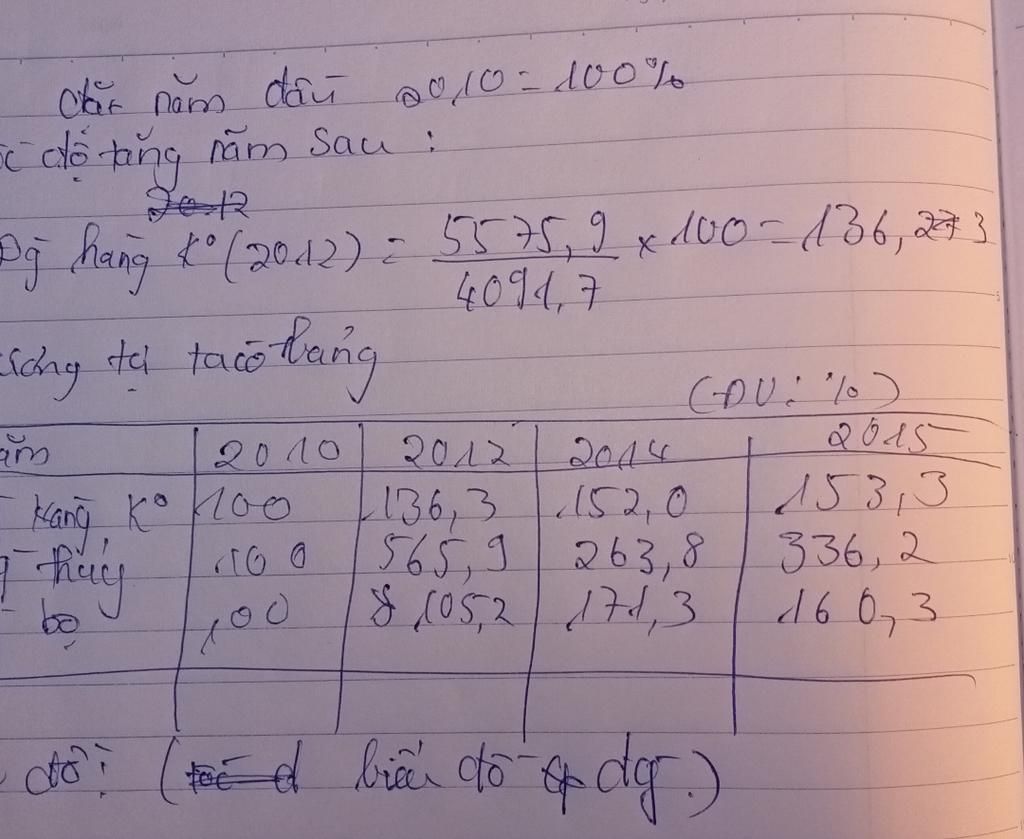 năm đầu 2010 = 100%
độ tăng năm sau :
hàng k° (2012) = 5575,9 / 4091,7 × 100 = 136,3
tự ta có bảng
(ĐV: %)
ăm 2010 2012 2014 2015
hàng K° 100 136,3 152,0 153,3
thủy 100 565,9 263,8 336,2
bộ 100 105,2 171,3 160,3
đồ: ( biểu đồ đg.)